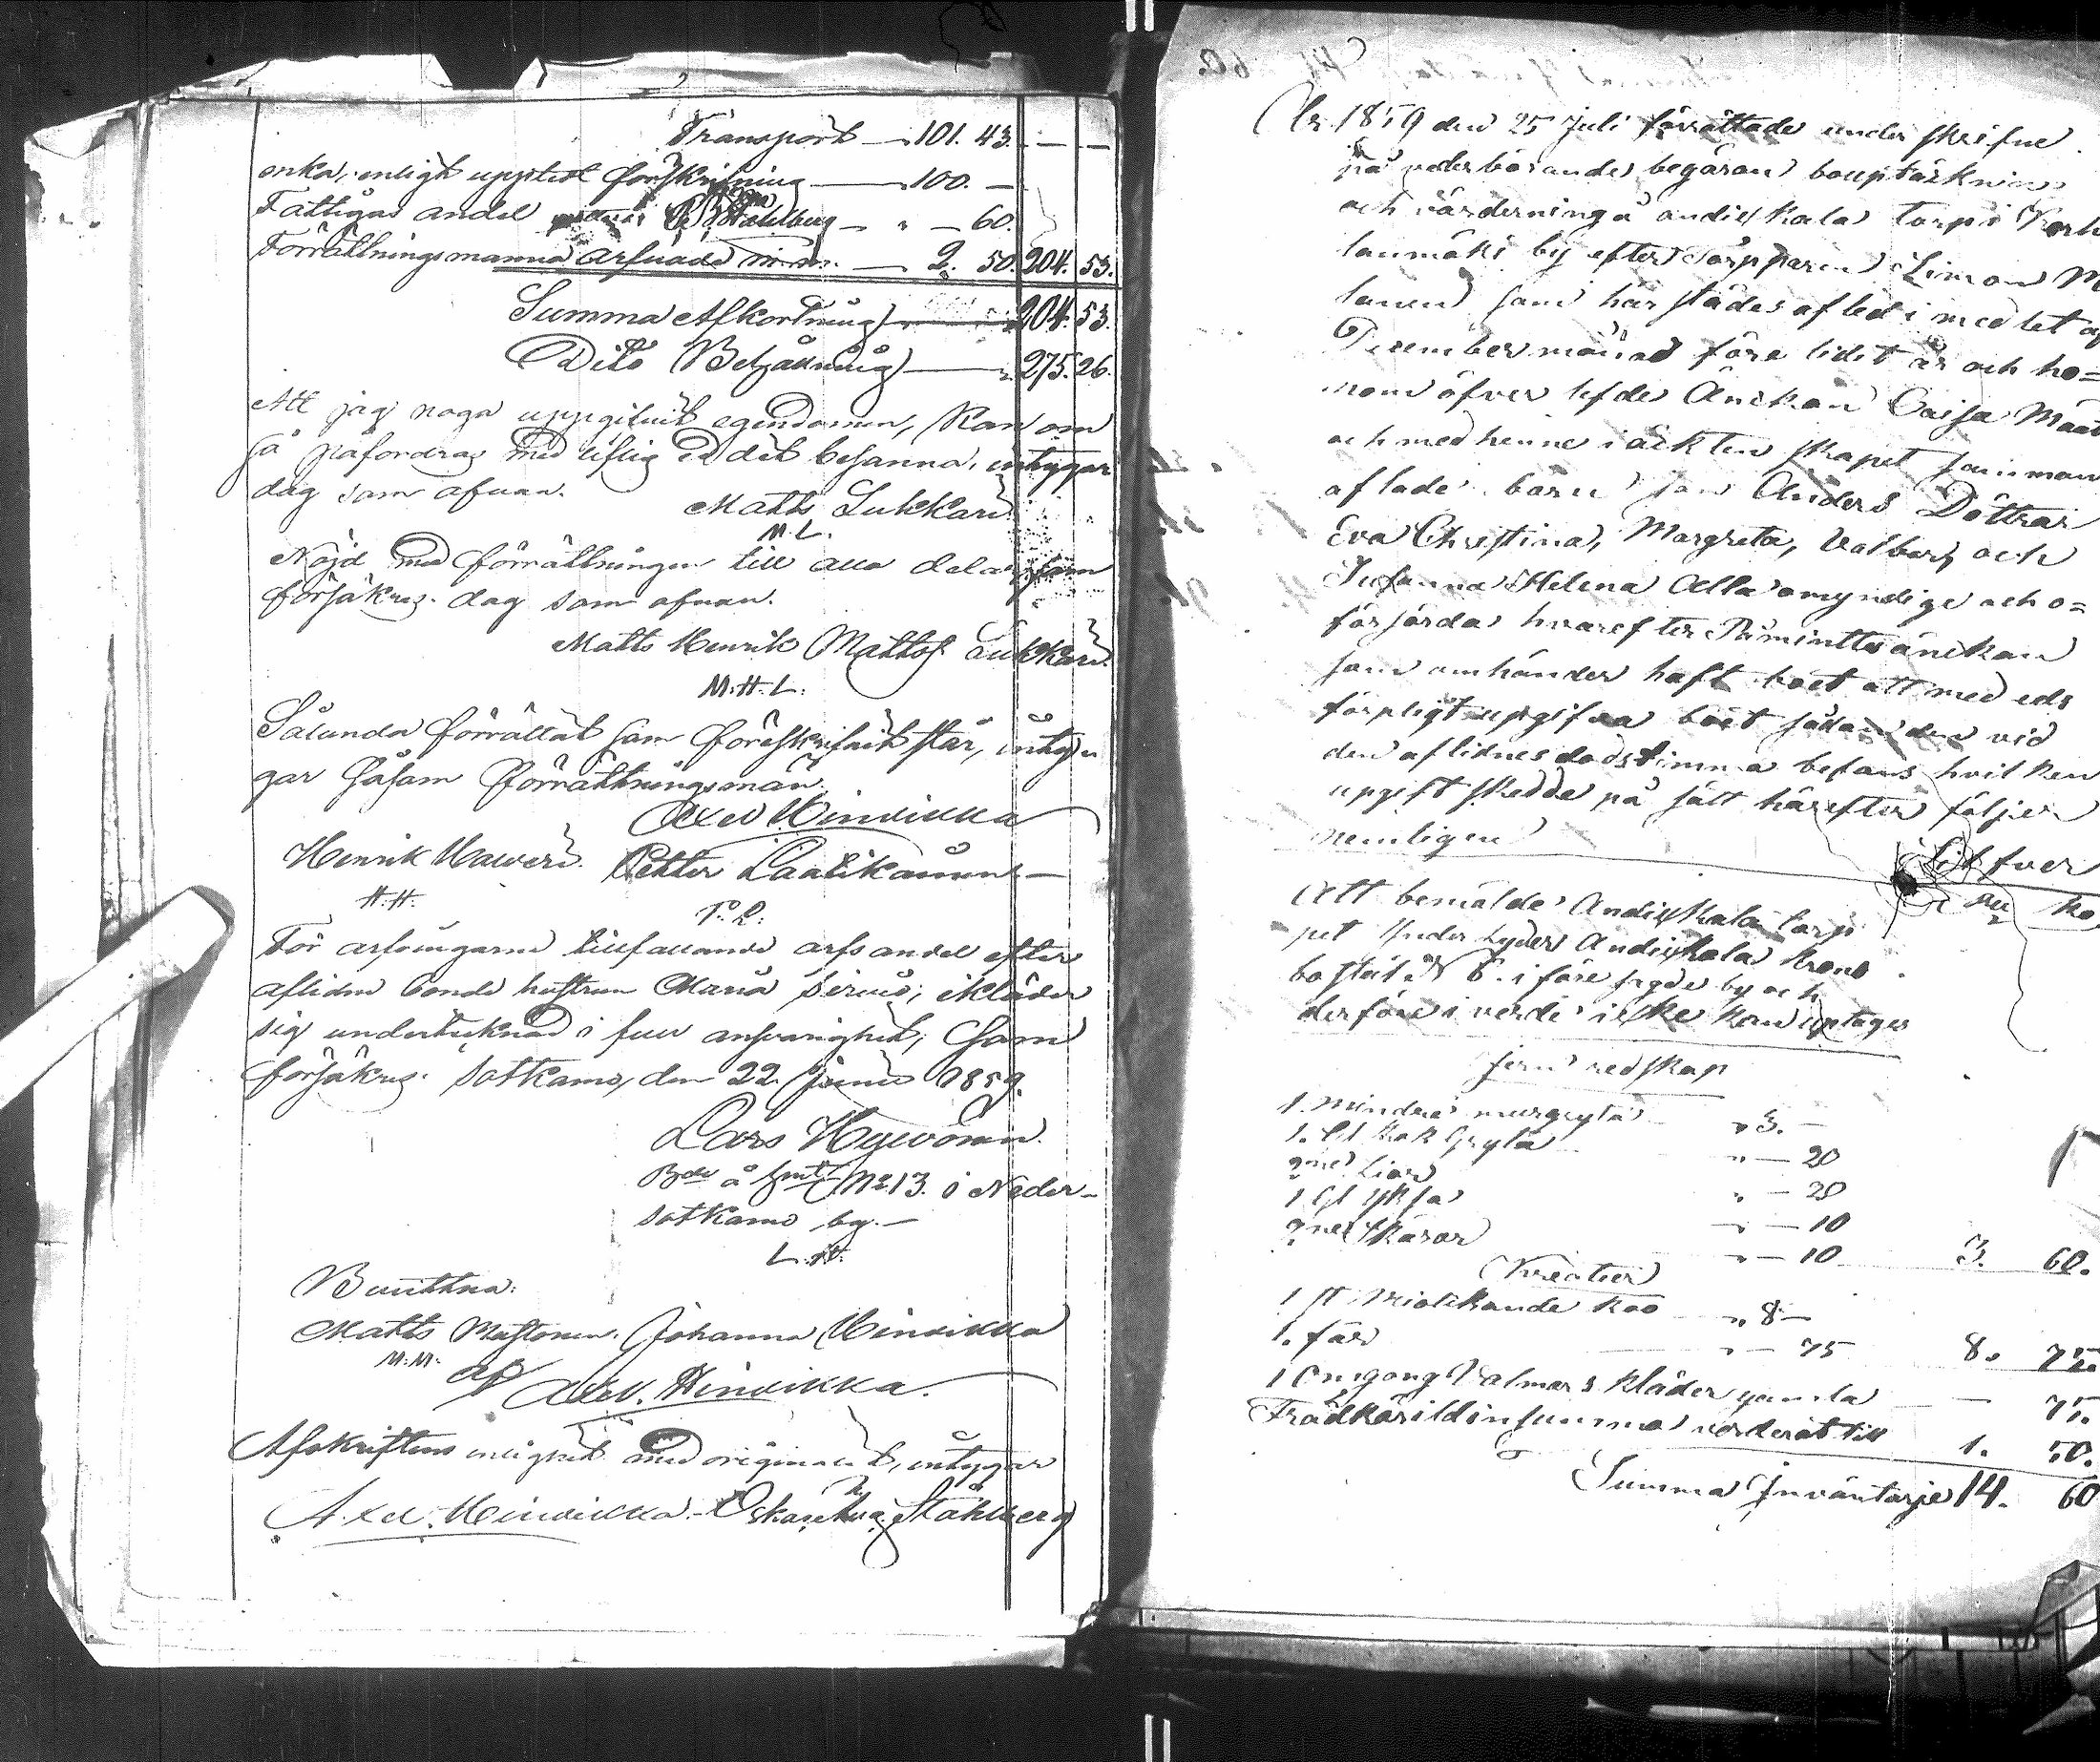 Transport — 101. 43. — —
enka, enligt uppvist förskrifning — 100. —
Fattigas andel Stahlberg — " — 60.
Förrättningsmanna arfvode m.m. — 2. 50. 204. 53.
Summa Afkortning — 204. 53.
Dito Behållning — 275. 26.
Att jag noga uppgifvit egendomen, kan om
så påfordras med liflig ed det besanna, intygar
dag som ofvan.
Matts Lukkari
M. L.
Nöjd med förrättningen till alla delar, som
försäkras. dag som ofvan.
Matts Henrik Mattss. Lukkari
M. H. L.
Sålunda förrättat som föreskrifvit står, inty-
gar såsom förrättningsmän.
Axel Hinvikka
Henrik Haveri. Petter Laatikainen
H. H. P. L.
För arfvingarne tillfallande arfsandel efter
aflidne bonde hustrun Maria, ikläder
sig undertecknad i full ansvarighet, som
försäkras. Sotkamo, den 22 Junii 1859.
Lars Hyvönen
Bde å hemt No 13. i Neder-
sotkamo by. —
L. H.
Bevittna:
Matts Mustonen. Johanna Hinvikka
M. M.
Axel. Hinvikka.
Afskriftens enlighet med originalet, intygar
Axel. Hinvikka. Oskar Ståhlberg
År 1859 den 25 Juli förrättade under skrifne
på vederbörandes begäran bouptäckning
och värdering å andiskala torp i Korho
lanmäki by efter Torpparen Simon M
lanen som här städes afled i medlet af
December månad före lidit år och ho=
nom öfver lefde Änckan Caisa
och med henne i ächtenskapet samman
aflade barn son Anders Döttrar
Eva Christina, Margreta, Valborg och
Susanna Helena Alla omyndige och o=
försörda hvarefter Påmintes änckan
som omhänder haft boet att med eds
förpligt upgifva boet sådan den vid
den aflidnes dödstimma befans hvilken
upgift skedde på sätt härefter följer
nemligen
Silfver
Ru Ko
Att bemälde Andiskala torp
pet under lyder Andiskala Krono
bostät N 6. i före sagde by och
derföre i verde icke kan uptages
jern redskap
1. mindre murgryta " 3. —
1. st kok gryta " — 20
2ne Liar " — 20
1 st yksa " — 10
2ne skäror " — 10 3. 60.
Kreatur
1 st miölkande koo " 8 —
1. får " — 75 8. 75
1 Omgång Valmars kläder gamla — 75.
Trädkäril in summa verderat till 1. 50.
Summa Inventarje 14. 60